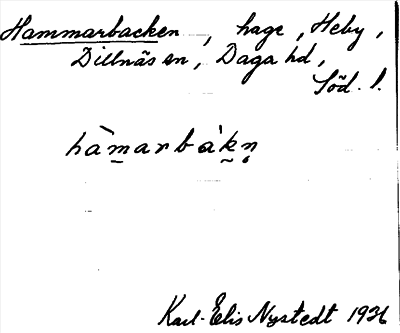 Hammarbacken, hage, Heby,
Dillnäs sn, Daga hd,
Söd. l.
hàmarbàkn̥
Karl-Elis Nystedt 1936